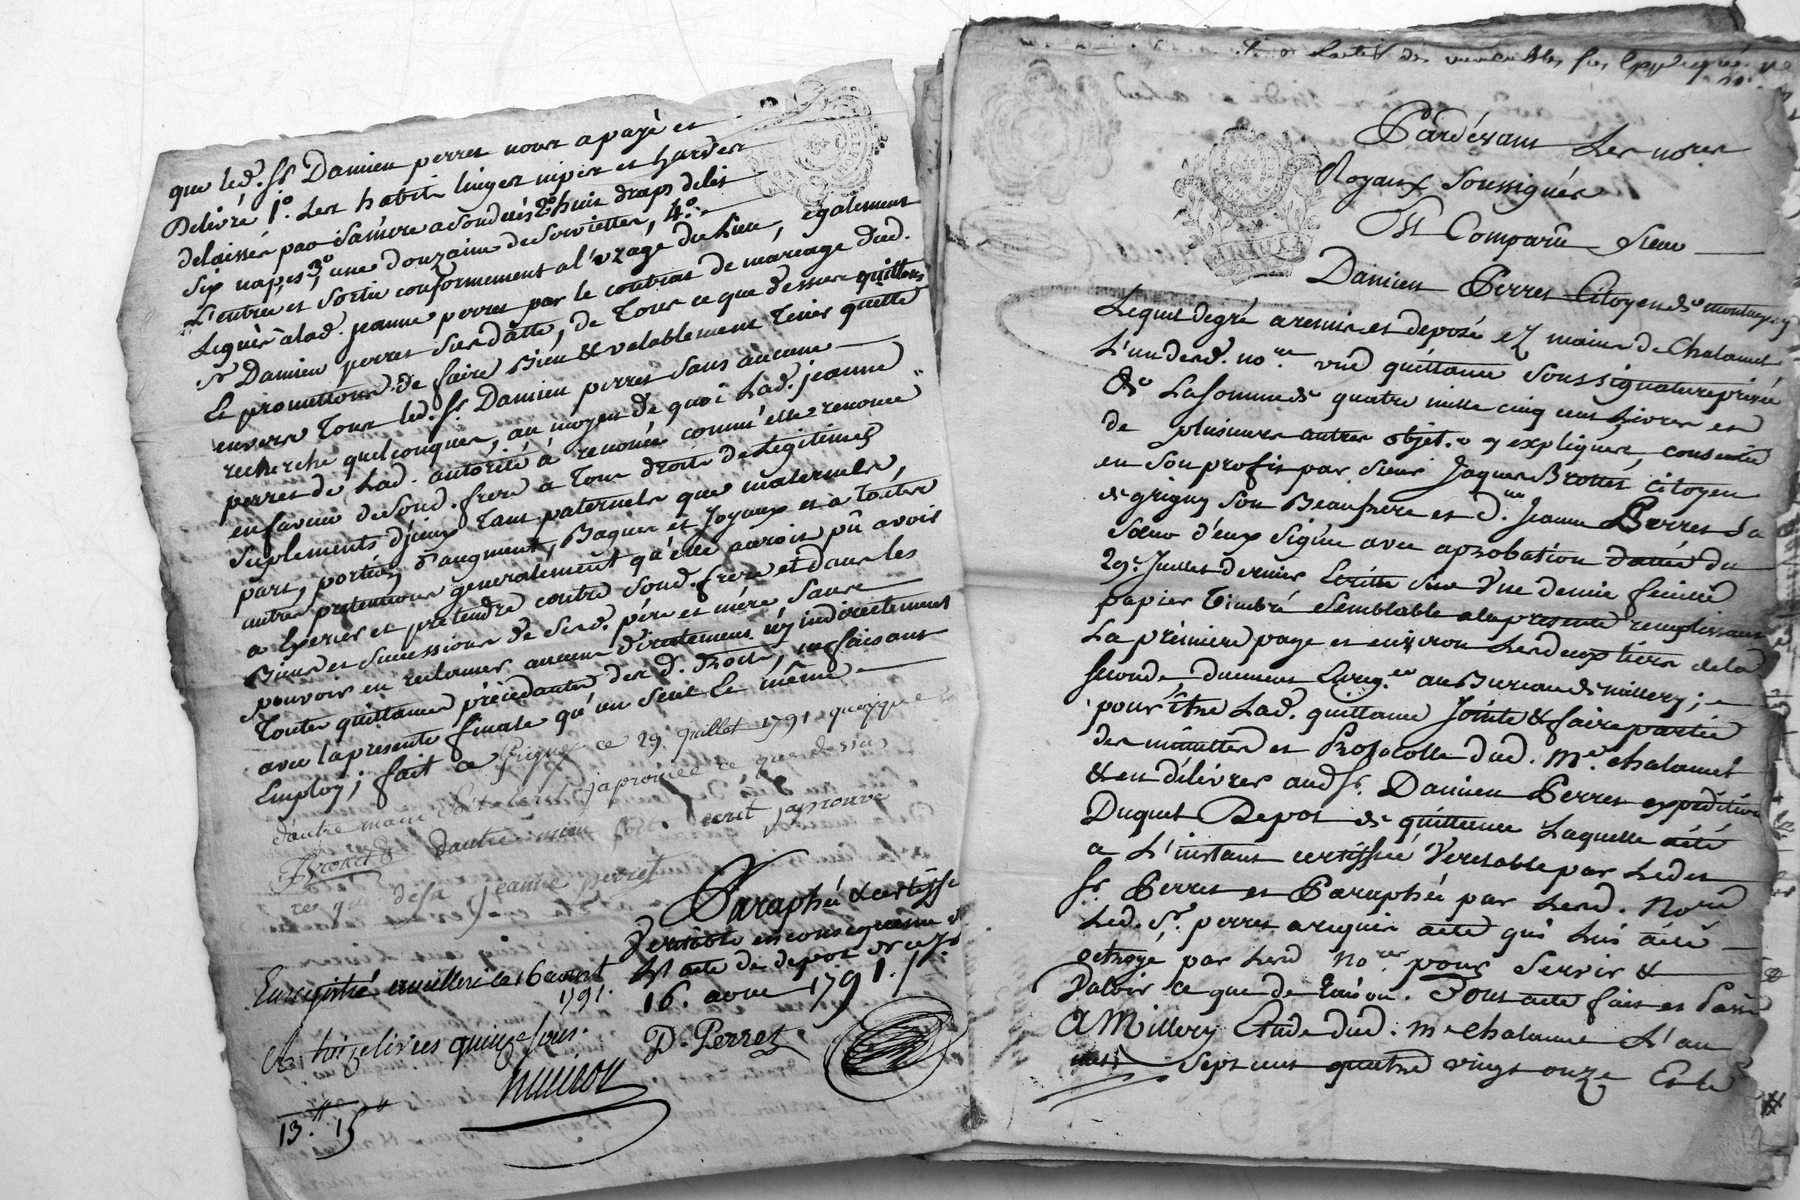 que led. sr. Damien perret nous a payé et
Delivré 1o. Les habits linges nipes et hardes
delaissés par sa mère a son decès 2o huit draps de lit
six napes, 3o une douzaine de serviettes, 4o.
L'entrée et sortie conformement a l'uzage du lieu, également
Legués à lad. jeanne perret par le contrat de mariage dud.
sr Damien perret susdatté, de Tout ce que dessus quittons
Le promettons de faire Bien & valablement Tenir quitte
envers Tous led. sr. Damien perret sans aucune
recherche quelconques, au moyen de quoi Lad. jeanne
perret de Lad. autorité à renoncée comme elle renonce
en faveur de sond. frere a Tous droits de Legitimes
suplements d'jceux Tant paternels que maternels,
part, portion d'augment, Bagues et Joyaux et a toutes
autres pretentions generalement qu'elle auroit pû avoir
a Exercer et prétendre contre sond. frere et dans les
Biens et successions de sesd. père et mère sans
pouvoir en reclamer aucune directement ny indirectement
Toutes quittances précédantes desd. droits, ne faisant
avec la presente finale qu'un seul Le même
Employ; fait a Grigny ce 29 juillet 1791 quoyque
d'autre main soit ecrit japrouve ce que dessus
Brottet d'autre main soit ecrit japrouve
ce que desu jeanne perret
Paraphé & certiffié
Veritable en consequence de
L'acte de depot de ce jour
16. aout 1791.
Enregistré a millery le 16 aout
1791.
treize livres quinze sous.
D. Perret
13.# 15
Pardevant Les nores
Royaux Soussignés
Est Comparû Sieur
Damien Perret Citoyen de montagny
Lequel degré a remis et deposé ez mains de Chalamel
L'un desd. nores une quittance sous signature privée
de La somme de quatre mille cinq cent Livres et
de plusieurs autres objets y expliqués, consentie
en son profit par sieur Jaques Brottet, citoyen
de grigny son Beaufrere et de. Jeanne Perret sa
sœur d'eux signée avec aprobation datée du
29e. Juillet dernier Ecritte sur une demie feuille
papier Timbré semblable a la presente remplissant
La prémiere page et environ Les deux tiers de la
seconde, duement Enreg.ée au Bureau de millery;
pour être Lad. quittance Jointe & faire partie
des minuttes et Protocolle dud. Me. chalamel
& en délivrer aud sr. Damien Perret expédition
Duquel Depot de quittance Laquelle a été
a L'instant certiffiée Veritable par Ledit
sr. Perret et Paraphée par Lesd. Nores
Led. Sr. perret a requis acte qui Lui a été
octroyé par Lesd nores pour servir &
Valoir ce que de raison. Dont acte fait et Passé
A Millery Etude dud. Me Chalamel L'an
sept cent quatre vingt onze Et le